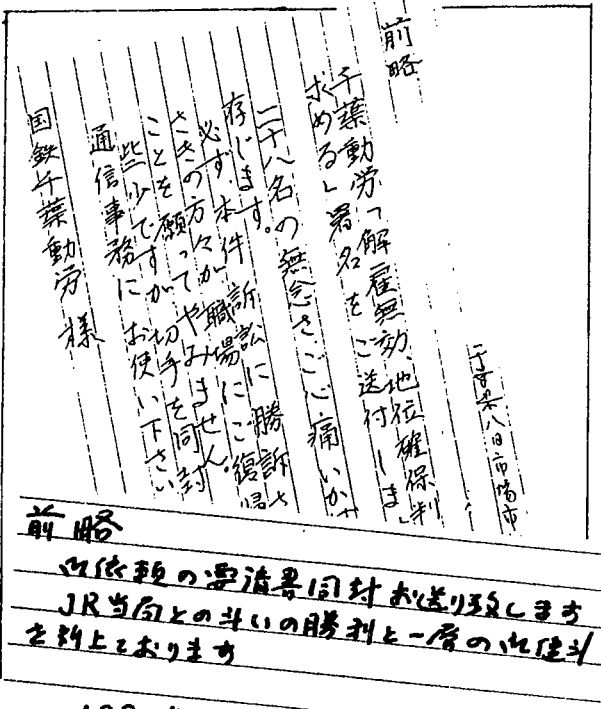 前略
千葉動労「解雇無効、地位確保判
求める」署名をご送付しま
二十八名の無念さ、ご心痛いかゞ
存じます。
必ず、本件訴訟に勝訴さ
さきの方々が職場にご復帰
ことを願ってやみません。
些少ですが切手を同封
通信事務にお使い下さい
国鉄千葉動労様
千葉県八日市場市
前略
御依頼の要請書同封お送り致します
JR当局との斗いの勝利と一層の御健斗
を祈上ております